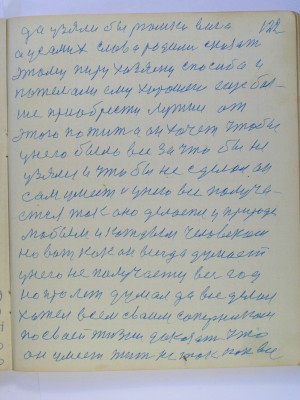 да узяли бы только вина 122
а у самих слова родили сказат
этому пиру хозяину спосиба и
пожелали ему хорошего еще бол-
ше приобрести лутши от
этого попита он хочет чтобы
у него было все за что бы не
узяли и что бы не сделал он
сам умеет и у него все получа-
ется так оно делаетси у природе
любым и каждым человеком
но вот как он всегда думает
у него не получаету все год
но про лет думал да все делал
хотел всем своим соперникам
по своей жизни доказат что
он умеет жит не так как все